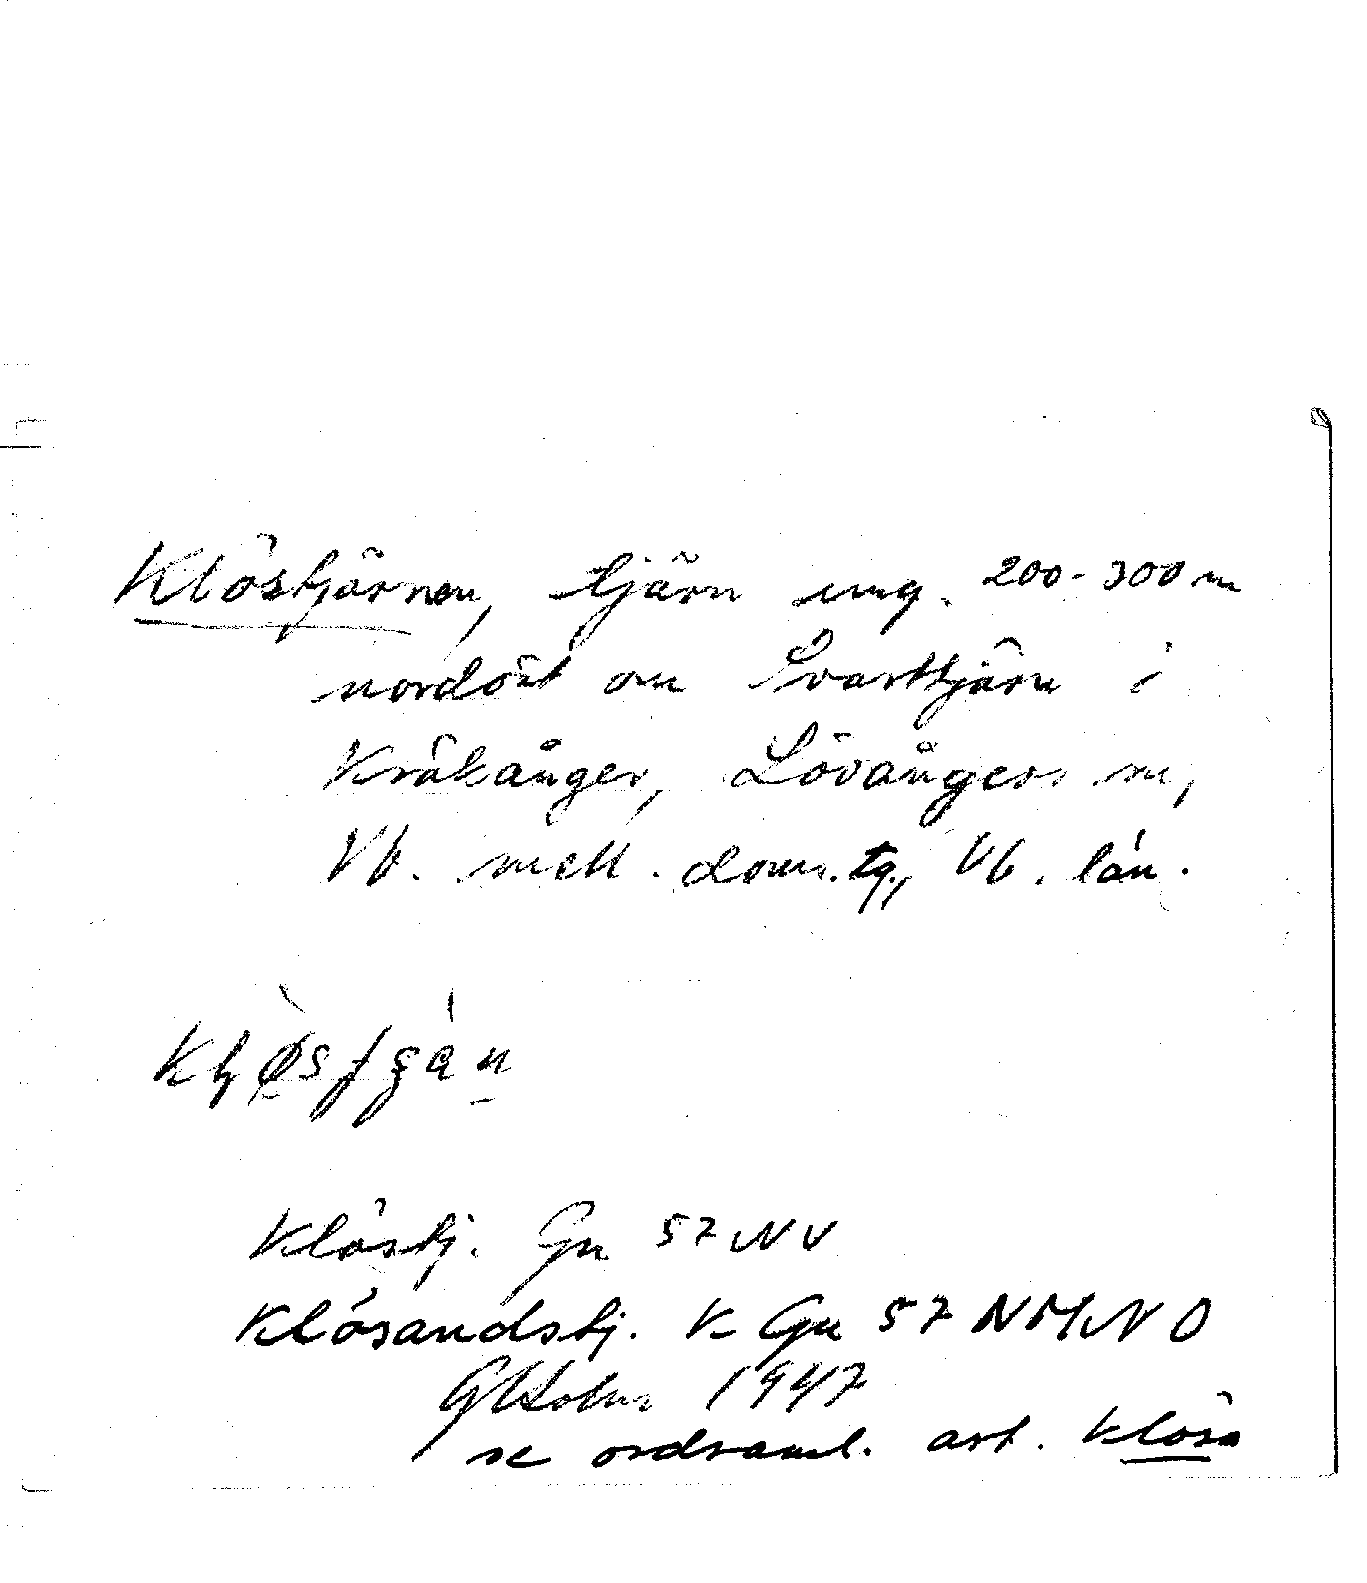 Klöstjärnen, tjärn ung. 200-300 m
nordöst om Svarttjärn i
Kräkånger, Lövångers sn,
Vb. mell. doms.tg., Vb. län.
Klöstj. Gn 57 NV
Klösandstj. K Gn 57 NMNO
GHolm 1947
se ordsaml. art. klösa